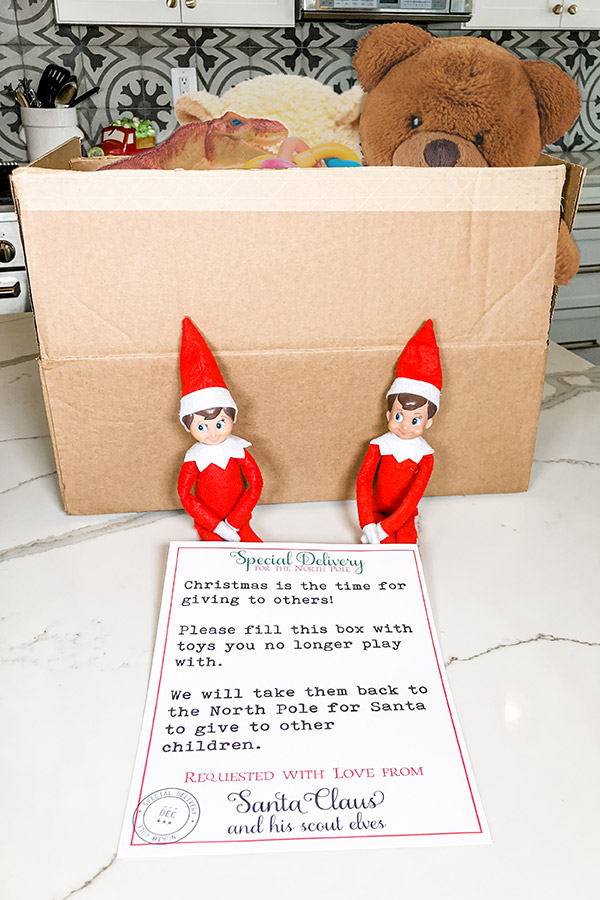 Special Delivery
FOR THE NORTH POLE
Christmas is the time for
giving to others!
Please fill this box with
toys you no longer play
with.
We will take them back to
the North Pole for Santa
to give to other
children.
REQUESTED WITH LOVE FROM
Santa Claus
and his scout elves
SPECIAL DELIVERY
DEC